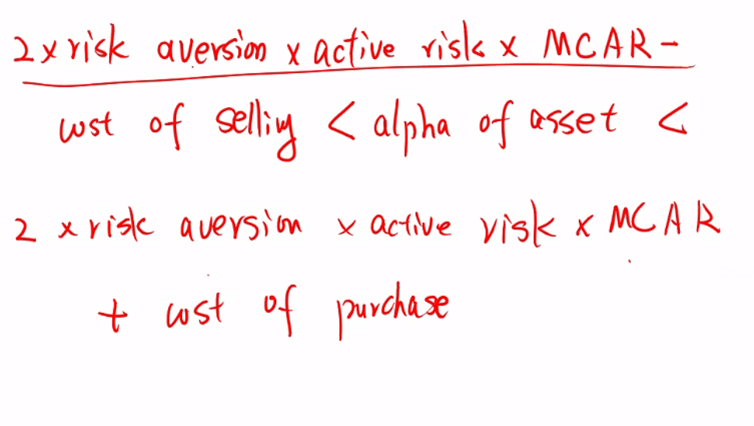 2 x risk aversion x active risk x MCAR -
cost of selling < alpha of asset <
2 x risk aversion x active risk x MCAR
+ cost of purchase